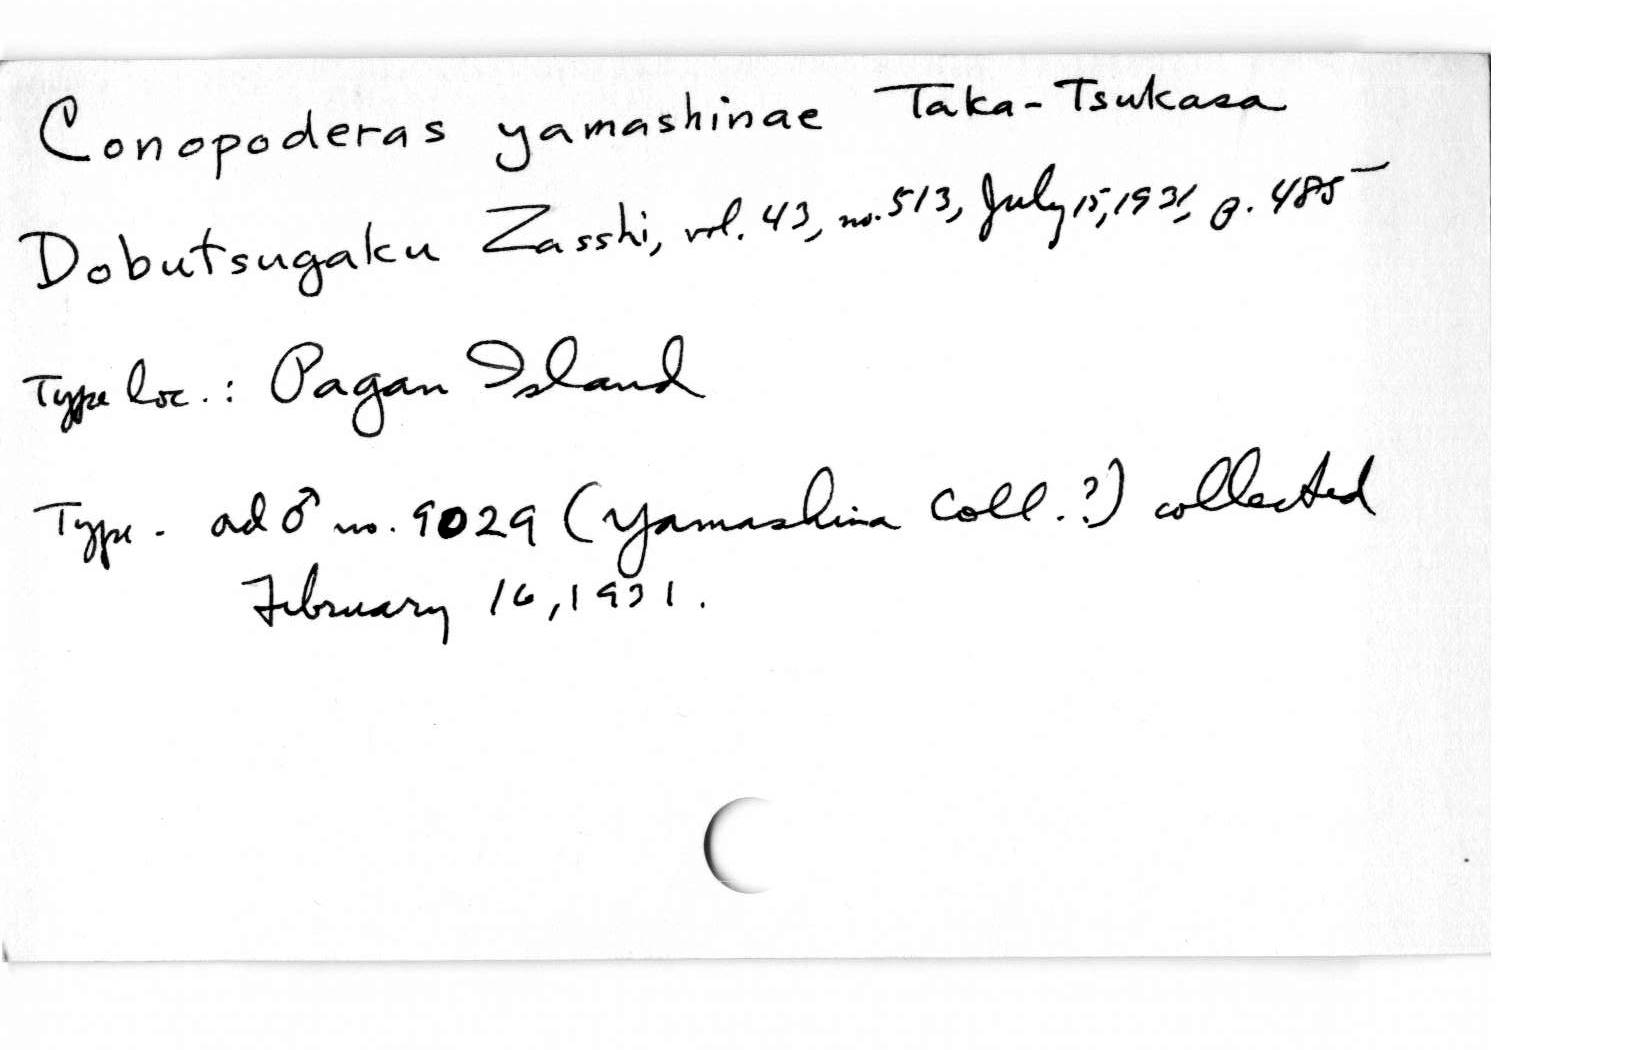 Conopoderas yamashinae Taka-Tsukasa
Dobutsugaku Zasshi, vol. 43, no. 513, July 15, 1931, p. 485
Type loc.: Pagan Island
Type - ad ♂ no. 9029 (Yamashina Coll.?) collected
February 16, 1931.